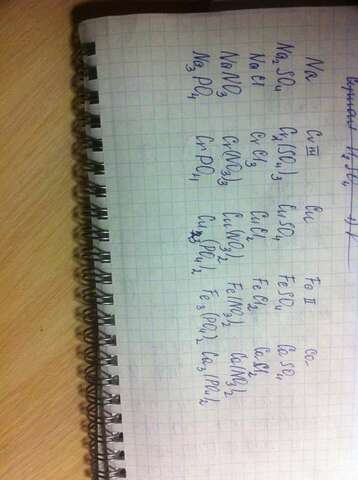 Na Cr III Cu Fe II Ca
Na₂SO₄ Cr₂(SO₄)₃ CuSO₄ FeSO₄ CaSO₄
NaCl CrCl₃ CuCl₂ FeCl₂ CaCl₂
NaNO₃ Cr(NO₃)₃ Cu(NO₃)₂ Fe(NO₃)₂ Ca(NO₃)₂
Na₃PO₄ CrPO₄ Cu₃(PO₄)₂ Fe₃(PO₄)₂ Ca₃(PO₄)₂